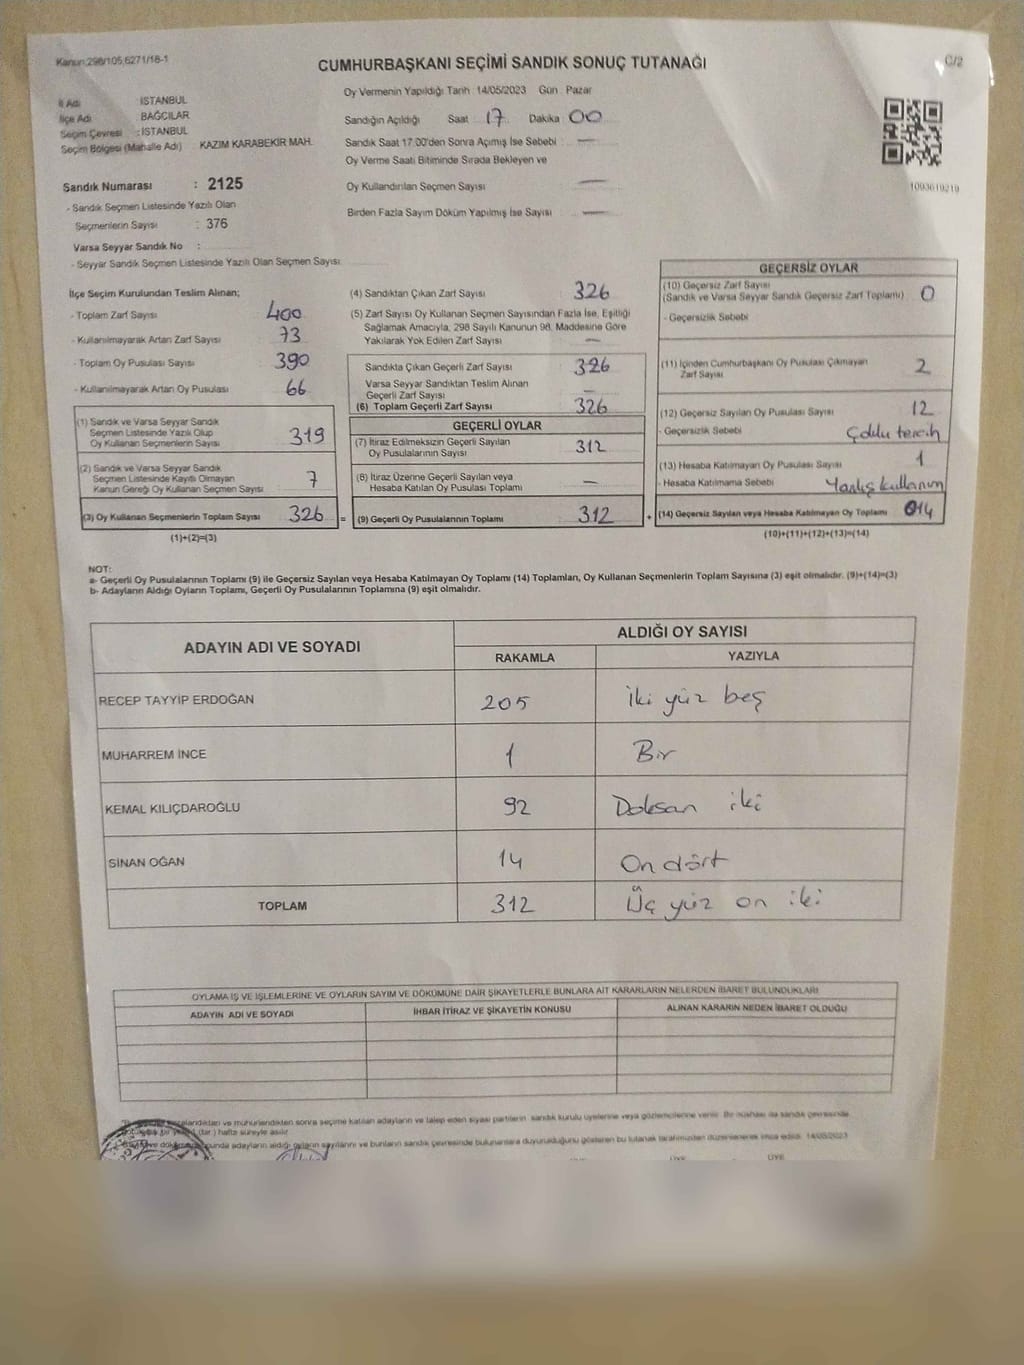 Kanun:298/105,6271/18-1
CUMHURBAŞKANI SEÇİMİ SANDIK SONUÇ TUTANAĞI
C/2
İl Adı İSTANBUL
İlçe Adı BAĞCILAR
Seçim Çevresi : İSTANBUL
Seçim Bölgesi (Mahalle Adı) KAZIM KARABEKİR MAH.
Oy Vermenin Yapıldığı Tarih : 14/05/2023 Gün : Pazar
Sandığın Açıldığı Saat : 17 Dakika : 00
Sandık Saat 17.00'den Sonra Açılmış İse Sebebi : —
Oy Verme Saati Bitiminde Sırada Bekleyen ve
Oy Kullandırılan Seçmen Sayısı —
Birden Fazla Sayım Döküm Yapılmış İse Sayısı —
1093619219
Sandık Numarası : 2125
- Sandık Seçmen Listesinde Yazılı Olan
Seçmenlerin Sayısı : 376
Varsa Seyyar Sandık No :
- Seyyar Sandık Seçmen Listesinde Yazılı Olan Seçmen Sayısı:
İlçe Seçim Kurulundan Teslim Alınan;
- Toplam Zarf Sayısı 400
- Kullanılmayarak Artan Zarf Sayısı 73
- Toplam Oy Pusulası Sayısı 390
- Kullanılmayarak Artan Oy Pusulası 66
(1) Sandık ve Varsa Seyyar Sandık
Seçmen Listesinde Yazılı Olup
Oy Kullanan Seçmenlerin Sayısı 319
(2) Sandık ve Varsa Seyyar Sandık
Seçmen Listesinde Kayıtlı Olmayan
Kanun Gereği Oy Kullanan Seçmen Sayısı 7
(3) Oy Kullanan Seçmenlerin Toplam Sayısı 326 =
(1)+(2)=(3)
(4) Sandıktan Çıkan Zarf Sayısı 326
(5) Zarf Sayısı Oy Kullanan Seçmen Sayısından Fazla İse, Eşitliği
Sağlamak Amacıyla, 298 Sayılı Kanunun 98. Maddesine Göre
Yakılarak Yok Edilen Zarf Sayısı —
Sandıkta Çıkan Geçerli Zarf Sayısı 326
Varsa Seyyar Sandıktan Teslim Alınan
Geçerli Zarf Sayısı —
(6) Toplam Geçerli Zarf Sayısı 326
GEÇERLİ OYLAR
(7) İtiraz Edilmeksizin Geçerli Sayılan
Oy Pusulalarının Sayısı 312
(8) İtiraz Üzerine Geçerli Sayılan veya
Hesaba Katılan Oy Pusulası Toplamı —
(9) Geçerli Oy Pusulalarının Toplamı 312 +
GEÇERSİZ OYLAR
(10) Geçersiz Zarf Sayısı
(Sandık ve Varsa Seyyar Sandık Geçersiz Zarf Toplamı) 0
- Geçersizlik Sebebi
(11) İçinden Cumhurbaşkanı Oy Pusulası Çıkmayan
Zarf Sayısı 2
(12) Geçersiz Sayılan Oy Pusulası Sayısı 12
- Geçersizlik Sebebi Çoklu tercih
(13) Hesaba Katılmayan Oy Pusulası Sayısı 1
- Hesaba Katılmama Sebebi Yanlış kullanım
(14) Geçersiz Sayılan veya Hesaba Katılmayan Oy Toplamı 014
(10)+(11)+(12)+(13)=(14)
NOT:
a- Geçerli Oy Pusulalarının Toplamı (9) ile Geçersiz Sayılan veya Hesaba Katılmayan Oy Toplamı (14) Toplamları, Oy Kullanan Seçmenlerin Toplam Sayısına (3) eşit olmalıdır. (9)+(14)=(3)
b- Adayların Aldığı Oyların Toplamı, Geçerli Oy Pusulalarının Toplamına (9) eşit olmalıdır.
ADAYIN ADI VE SOYADI ALDIĞI OY SAYISI
RAKAMLA YAZIYLA
RECEP TAYYİP ERDOĞAN 205 İki yüz beş
MUHARREM İNCE 1 Bir
KEMAL KILIÇDAROĞLU 92 Doksan iki
SİNAN OĞAN 14 On dört
TOPLAM 312 Üç yüz on iki
OYLAMA İŞ VE İŞLEMLERİNE VE OYLARIN SAYIM VE DÖKÜMÜNE DAİR ŞİKAYETLERLE BUNLARA AİT KARARLARIN NELERDEN İBARET BULUNDUKLARI
ADAYIN ADI VE SOYADI İHBAR İTİRAZ VE ŞİKAYETİN KONUSU ALINAN KARARIN NEDEN İBARET OLDUĞU
ve mühürlendikten sonra seçime katılan adayların ve talep eden siyasi partilerin sandık kurulu üyelerine veya gözlemcilerine verilir. Bir nüshası da sandık çevresinde
bir (tar.) hafta süreyle asılır.
adayların aldığı oyların sayılarını ve bunların sandık çevresinde bulunanlara duyurulduğunu gösteren bu tutanak tarafımızdan düzenlenerek imza edildi. 14/05/2023
ÜYE ÜYE